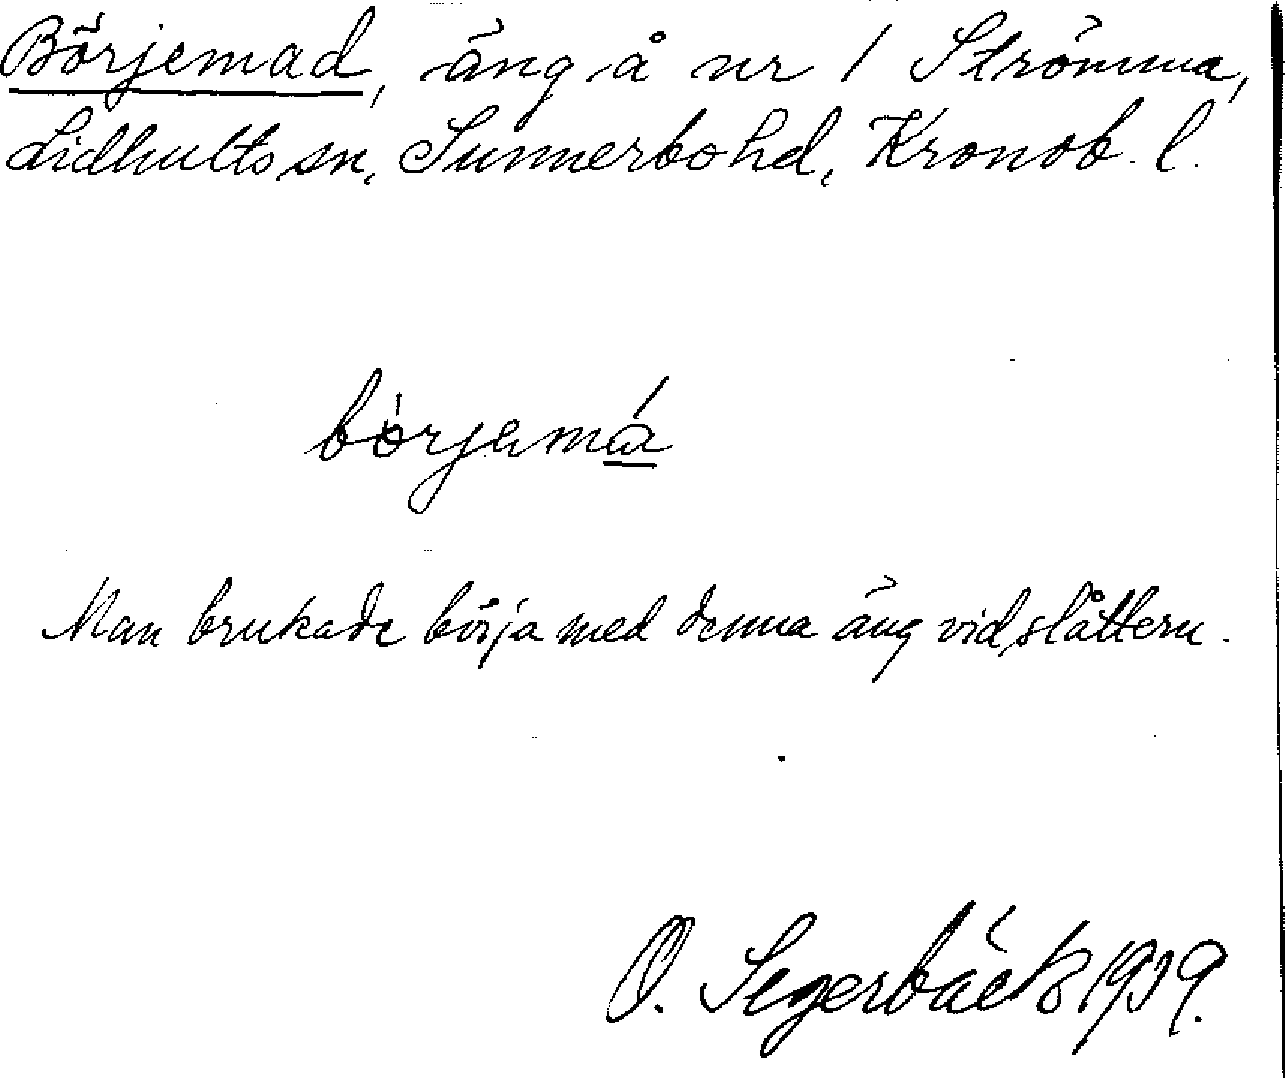 Börjemad, äng å nr 1 Strömma,
Lidhults sn, Sunnerbo hd, Kronob. l.
börjamá
Man brukade börja med denna äng vid slåttern.
O. Segerbäck 1919.